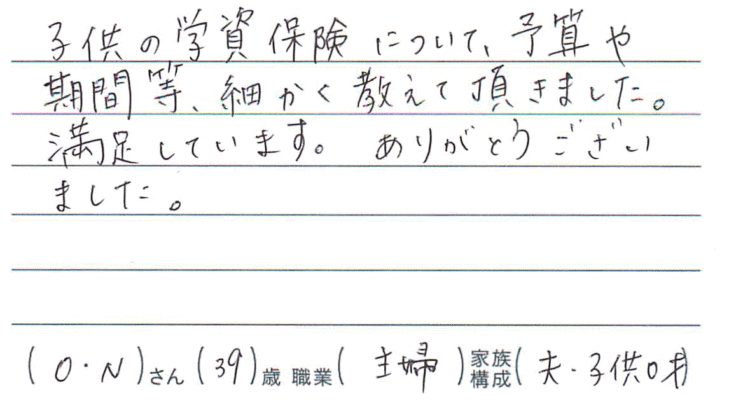 子供の学資保険について、予算や
期間等、細かく教えて頂きました。
満足しています。 ありがとうござい
ました。
(O・N)さん(39)歳 職業(主婦)家族構成(夫・子供0才)